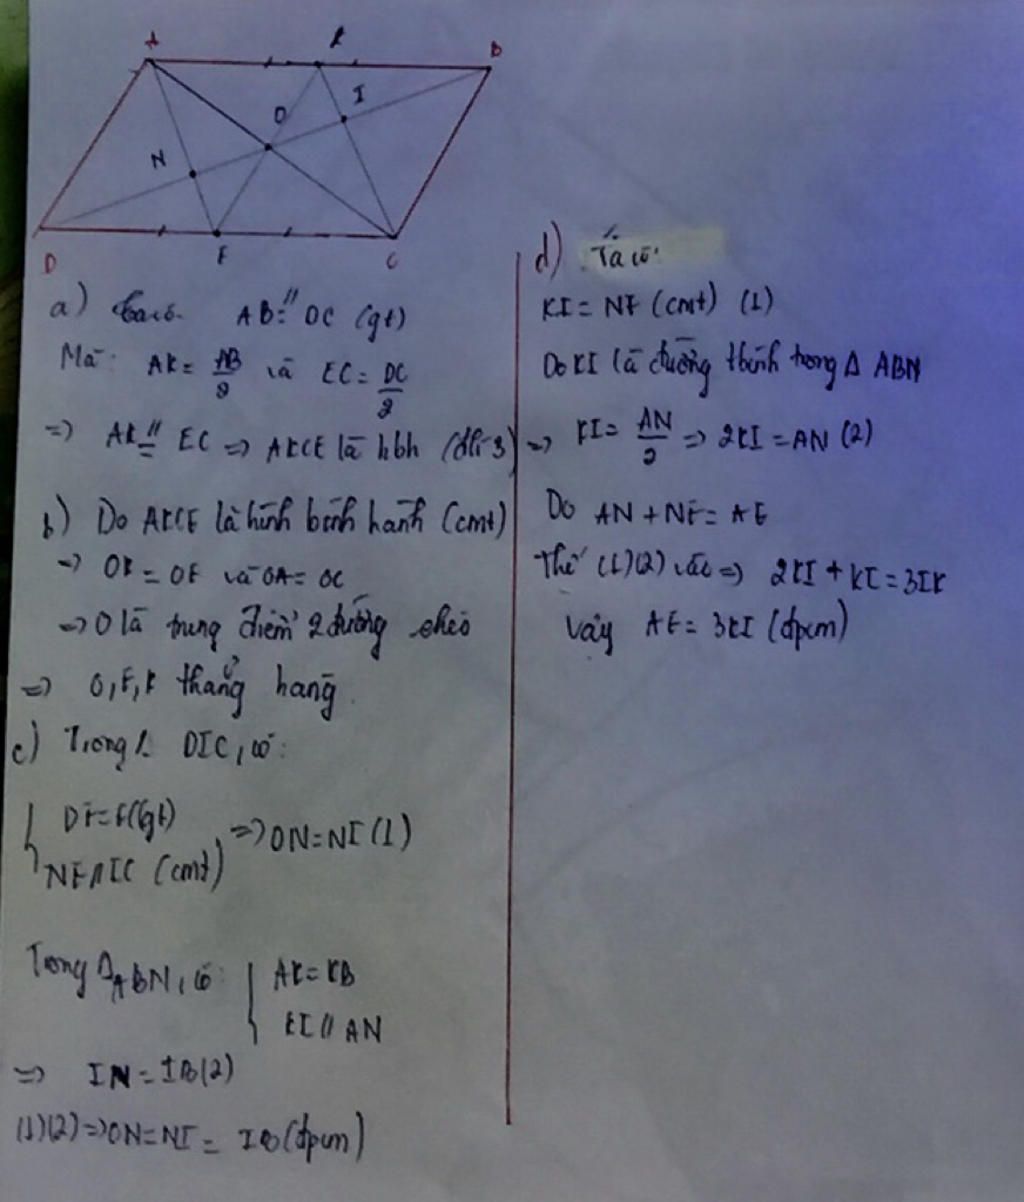 A K B
O I
N
D E C
a) Ta có. AB // = DC (gt)
Mà: AK = AB/2 và EC = DC/2
=> AK // = EC => AKCE là hbh (dh 3)
b) Do AKCE là hình bình hành (cmt)
=> OK = OE và OA = OC
=> O là trung điểm 2 đường chéo
=> O, E, K thẳng hàng.
c) Trong Δ DIC, có:
NE // IC (cmt) => DN = NI (1)
Trong Δ ABN, có: AK = KB
KI // AN
=> IN = IB (2)
(1)(2) => DN = NI = IB (đpcm)
d) Ta có:
KI = NE (cmt) (1)
Do KI là đường tbình trong Δ ABN
=> KI = AN/2 => 2KI = AN (2)
Do AN + NE = AE
Thế (1)(2) vào => 2KI + KI = 3IK
Vậy AE = 3KI (đpcm)